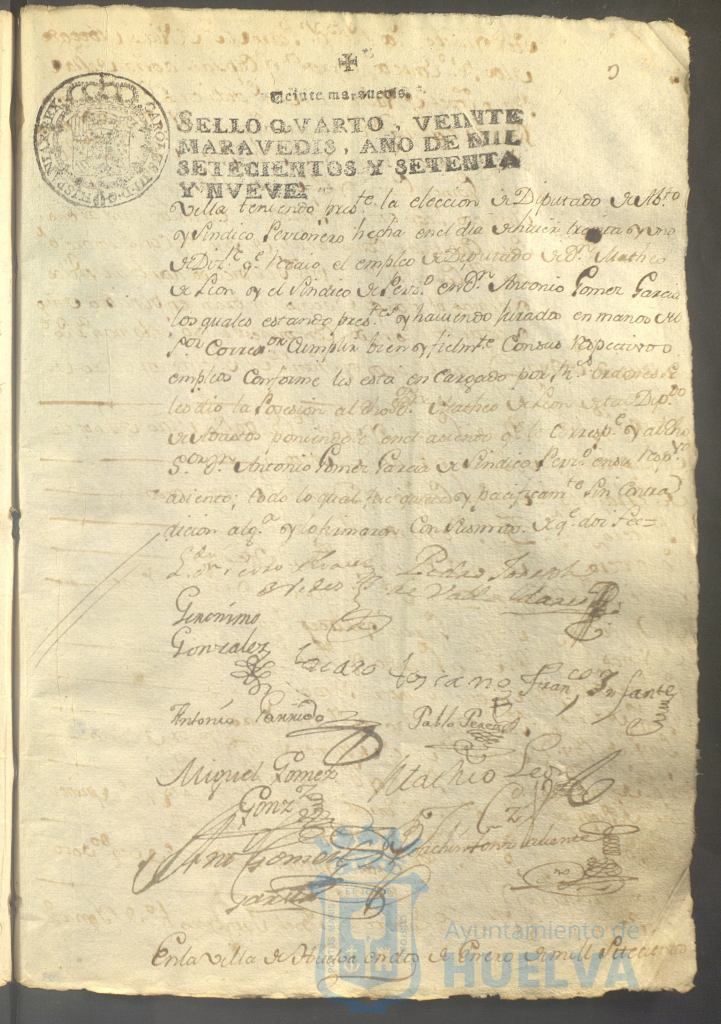 Veinte maravedis.
SELLO QVARTO, VEINTE
MARAVEDIS, AÑO DE MIL
SETECIENTOS Y SETENTA
Y NVEVE.
Villa teniendo pres.te la eleccion de Diputado de Ab.to
y Sindico Personero hecha en el dia de hauer treinta y uno
de Diz.re q.e recaio el empleo de Diputado de D.n Matheo
de Leon y el Sindico de Pers.o en D.n Antonio Gomez Garcia
los quales estando pres.tes y haviendo jurado en manos de
S.or Correx.or Cumplir bien y fielm.te Con sus respectivos
empleos Conforme les està encargado por ordenes Se
les dio la Posesion al dho D.n Matheo de Leon de tal Dip.do
de Abastos poniendole en el asiento q.e le corresp.e y al dho
D.n Antonio Gomez Garcia de Sindico Pers.o en su resp.vo
asiento; todo lo qual fue quieta y pacificam.te Sin Contra
dicion alg.a y lo firmaron Con sus mrds. de q.e doi Fee=
Pedro Joseph
de Valladares
Geronimo
Gonzalez
Lazaro Toscano Fran.co Infante
Antonio Garrido Pablo Perez
Miguel Gomez Matheo Leon
Gonz.z
Ant.o Gomez
Garcia
En la villa de Huelva en dos de Enero de mill Setecientos
Ayuntamiento de
HUELVA